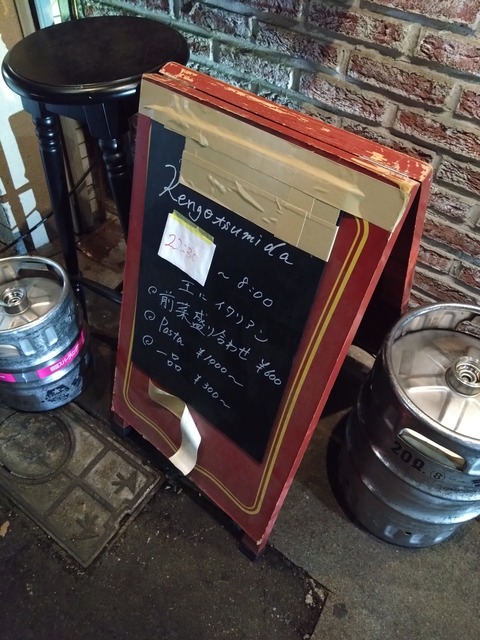 Kengotsumida
22:00
～8:00
エ に イタリアン
@前菜盛り合わせ ¥600
@Pasta ¥1000～
@一品 ¥300～
20ℓ 8